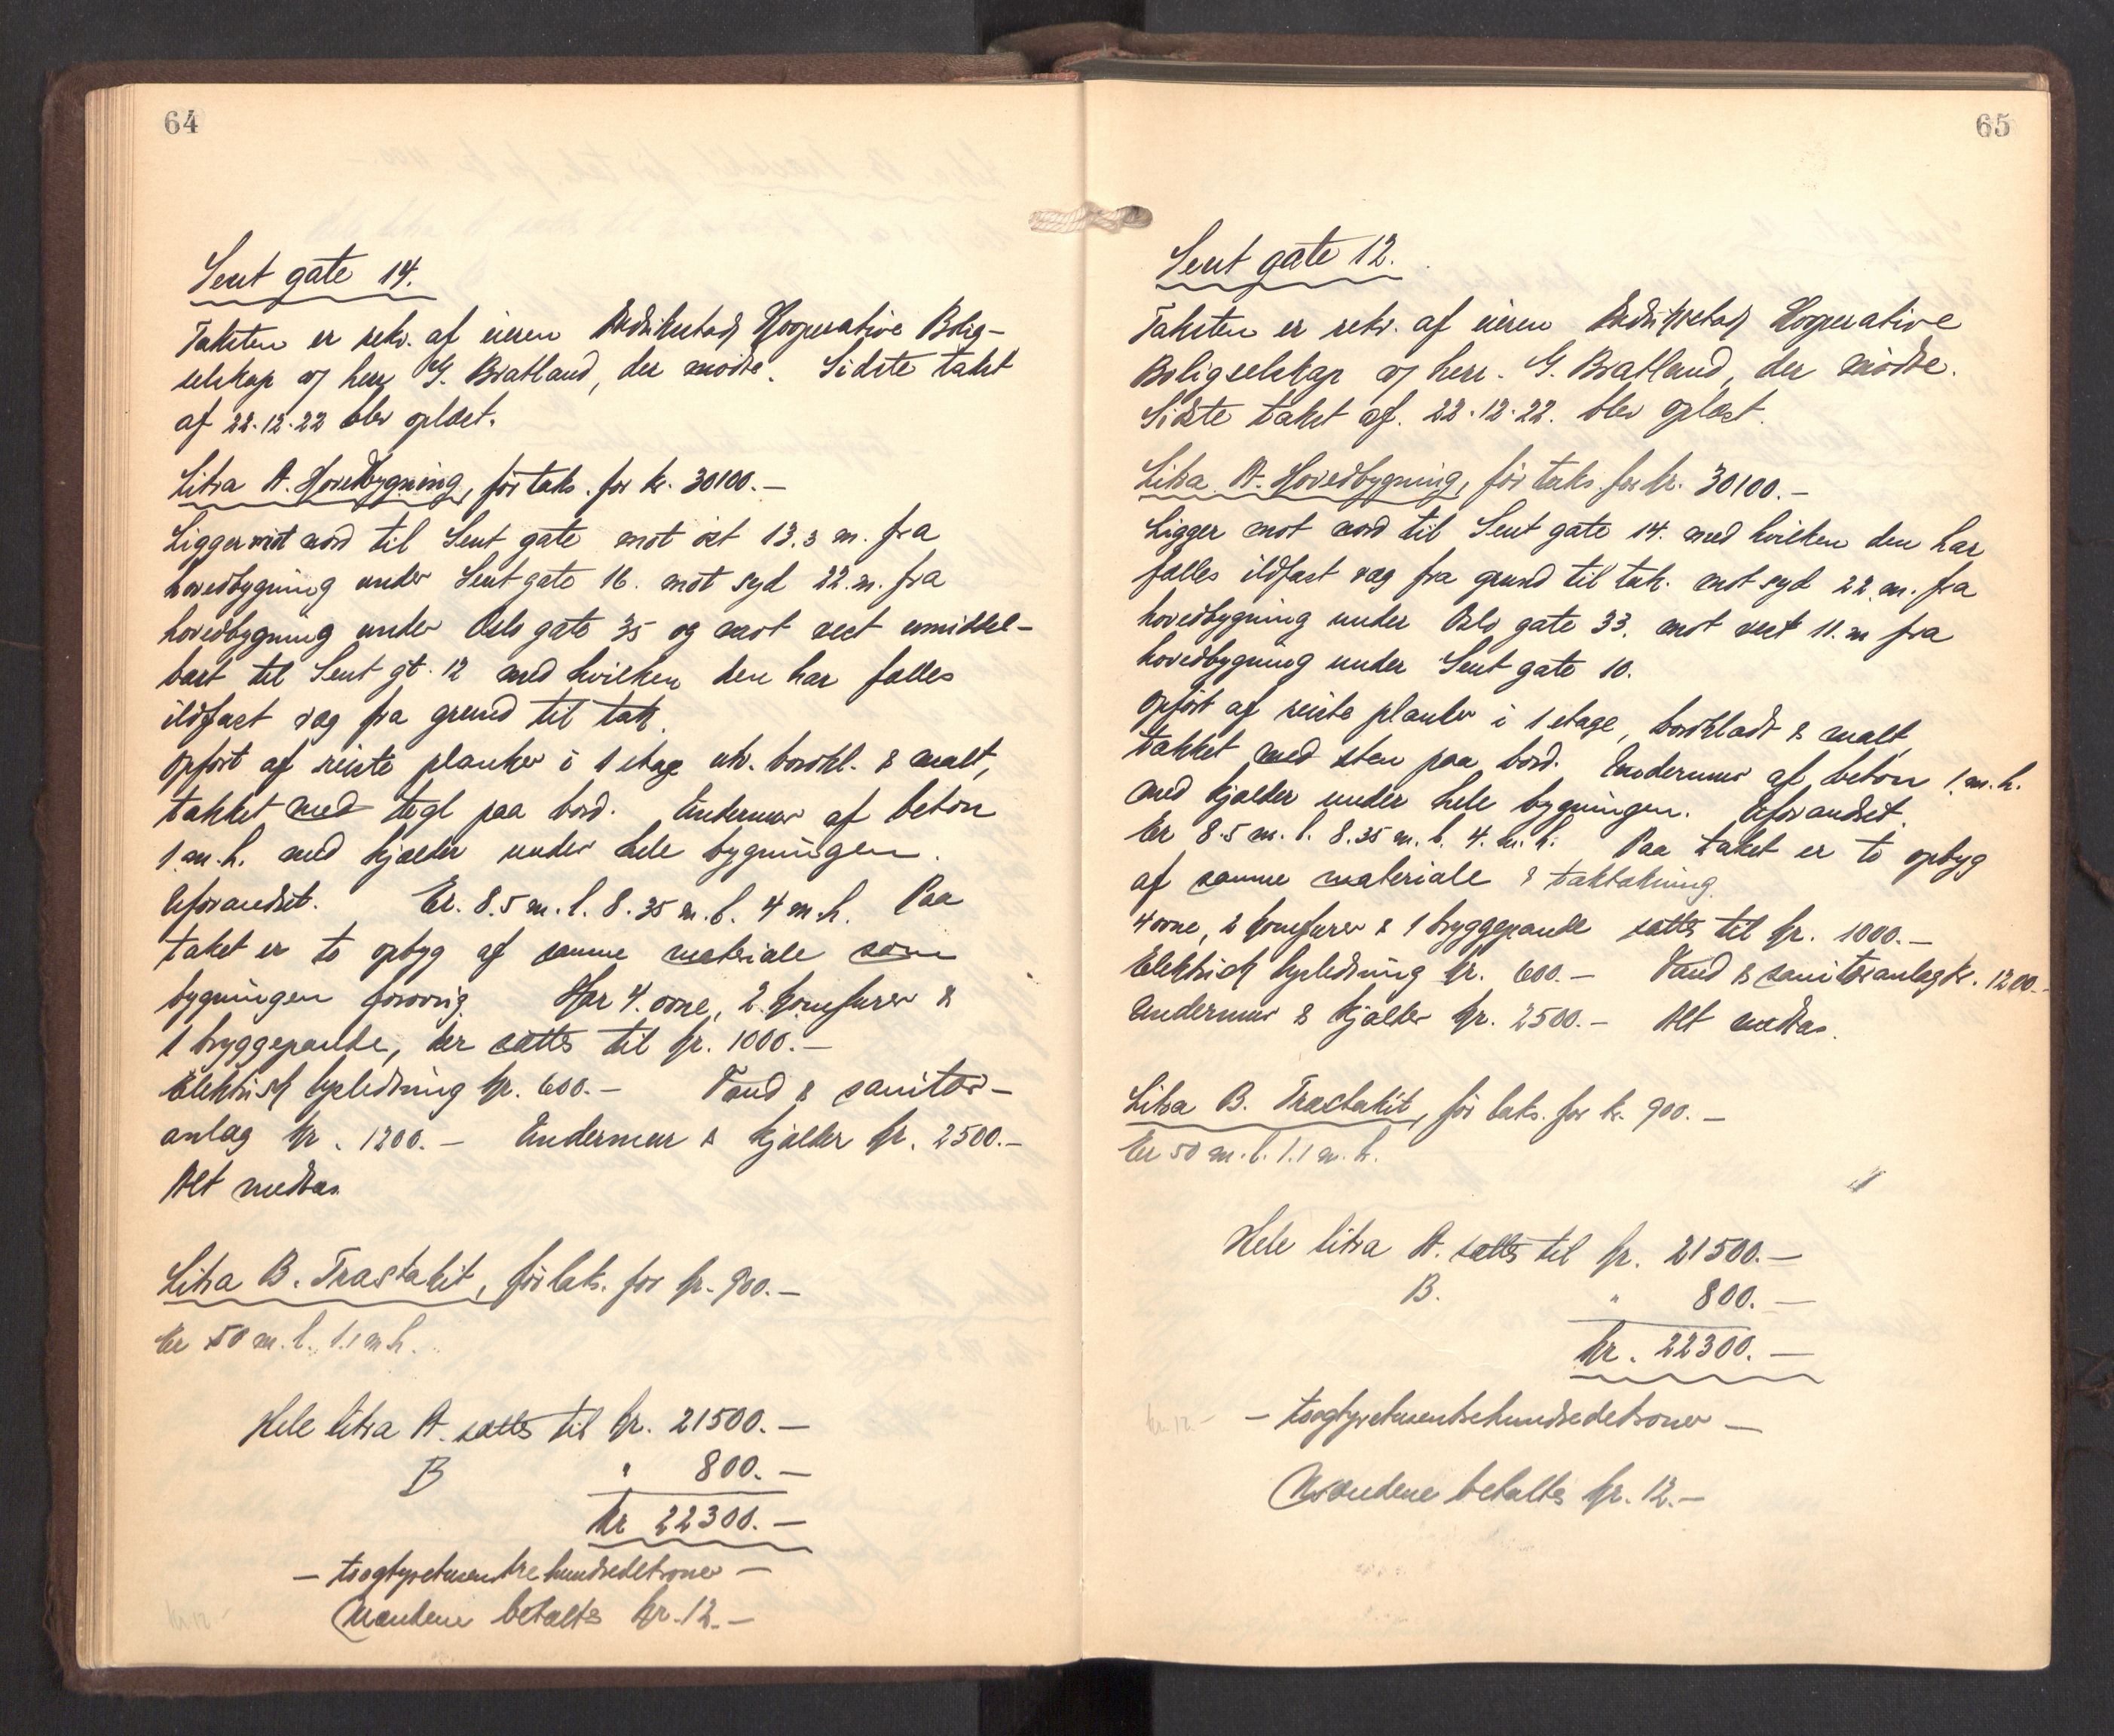 64
Lent gate 14.
Taksten er rekv. af eieren Fredrikstads Kooperative Bolig-
selskap v/ herr G. Bratland, der mødte. Sidste takst
af 22.12.22 blev oplæst.
Litra A. Hovedbygning, før taks. for kr. 30100.-
Ligger mot nord til Lent gate mot øst 13.3 m. fra
hovedbygning under Lent gate 16. mot syd 22.m. fra
hovedbygning under Oslo gate 35 og mot vest umiddel-
bart til Lent gt. 12 med hvilken den har fælles
ildfast væg fra grund til tak.
Opført af reiste planker i 1 etage utv. bordkl. & malt,
tækket med tegl paa bord. Undermur af beton
1 m.h. med kjælder under hele bygningen.
Uforandret. Er. 8.5 m.l. 8.35 m.b. 4 m.h. Paa
taket er to opbyg af samme materiale som
bygningen forøvrig. Har 4. ovne, 2. komfurer &
1 bryggepande, der sættes til kr. 1000.-
Elektrisk lysledning kr. 600.- Vand & sanitær-
anlæg kr. 1200.- Undermur & kjælder kr. 2500.-
Alt medtas.
Litra B. Træstakit, før taks. for kr. 900.-
Er 50 m.l. 1.1 m h.
Hele litra A. sættes til kr. 21500.-
B " 800.-
kr 22300.-
- toogtyvetusentrehundredekroner -
Mændene betaltes kr. 12.-
kr 12.-
65
Lent gate 12.
Taksten er rekv. af eieren Fredrikstads Kooperative
Boligselskap v/ herr. G. Bratland, der mødte.
Sidste takst af. 22.12.22. blev oplæst.
Litra A. Hovedbygning, før taks. for kr. 30100.-
Ligger mot nord til Lent gate 14. med hvilken den har
fælles ildfast væg fra grund til tak. mot syd 22. m. fra
hovedbygning under Oslo gate 33. mot vest 11. m fra
hovedbygning under Lent gate 10.
Opført af reiste planker i 1 etage, bordklædt & malt,
tækket med sten paa bord. Undermur af beton 1. m. h.
med kjælder under hele bygningen. Uforandret.
Er 8.5 m. l. 8.35 m. b. 4. m. h. Paa taket er to opbyg
af samme materiale & taktækning.
4 ovne, 2 komfurer & 1 bryggepande sættes til kr. 1000.-
Elektrisk lysledning kr. 600.- Vand & sanitæranlæg kr. 1200.-
Undermur & kjælder kr. 2500.- Alt medtas.
Litra B. Træstakit, før taks. for kr. 900.-
Er 50 m. l. 1.1 m. h.
Hele litra A. sættes til kr. 21500.-
B. " 800.-
kr. 22300.-
- toogtyvetusentrehundredekroner -
kr. 12.-
Mændene betaltes kr. 12.-